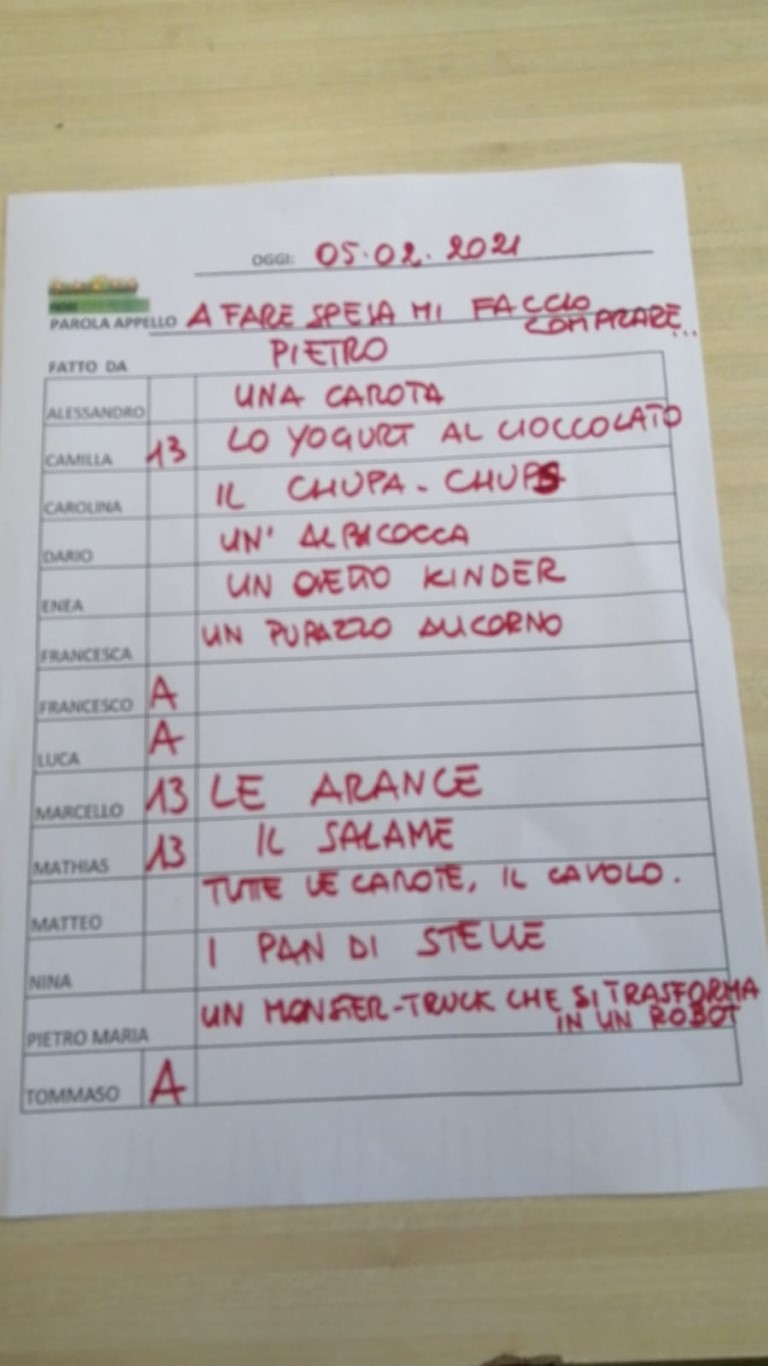 OGGI: 05.02.2021
PAROLA APPELLO A FARE SPESA MI FACCIO
COMPRARE...
FATTO DA PIETRO
ALESSANDRO UNA CAROTA
CAMILLA 13 LO YOGURT AL CIOCCOLATO
CAROLINA IL CHUPA-CHUPS
DARIO UN' ALBICOCCA
ENEA UN OVETTO KINDER
FRANCESCA UN PUPAZZO ALICORNO
FRANCESCO A
LUCA A
MARCELLO 13 LE ARANCE
MATHIAS 13 IL SALAME
MATTEO TUTTE LE CAROTE, IL CAVOLO.
NINA I PAN DI STELLE
PIETRO MARIA UN MONSTER-TRUCK CHE SI TRASFORMA
IN UN ROBOT
TOMMASO A